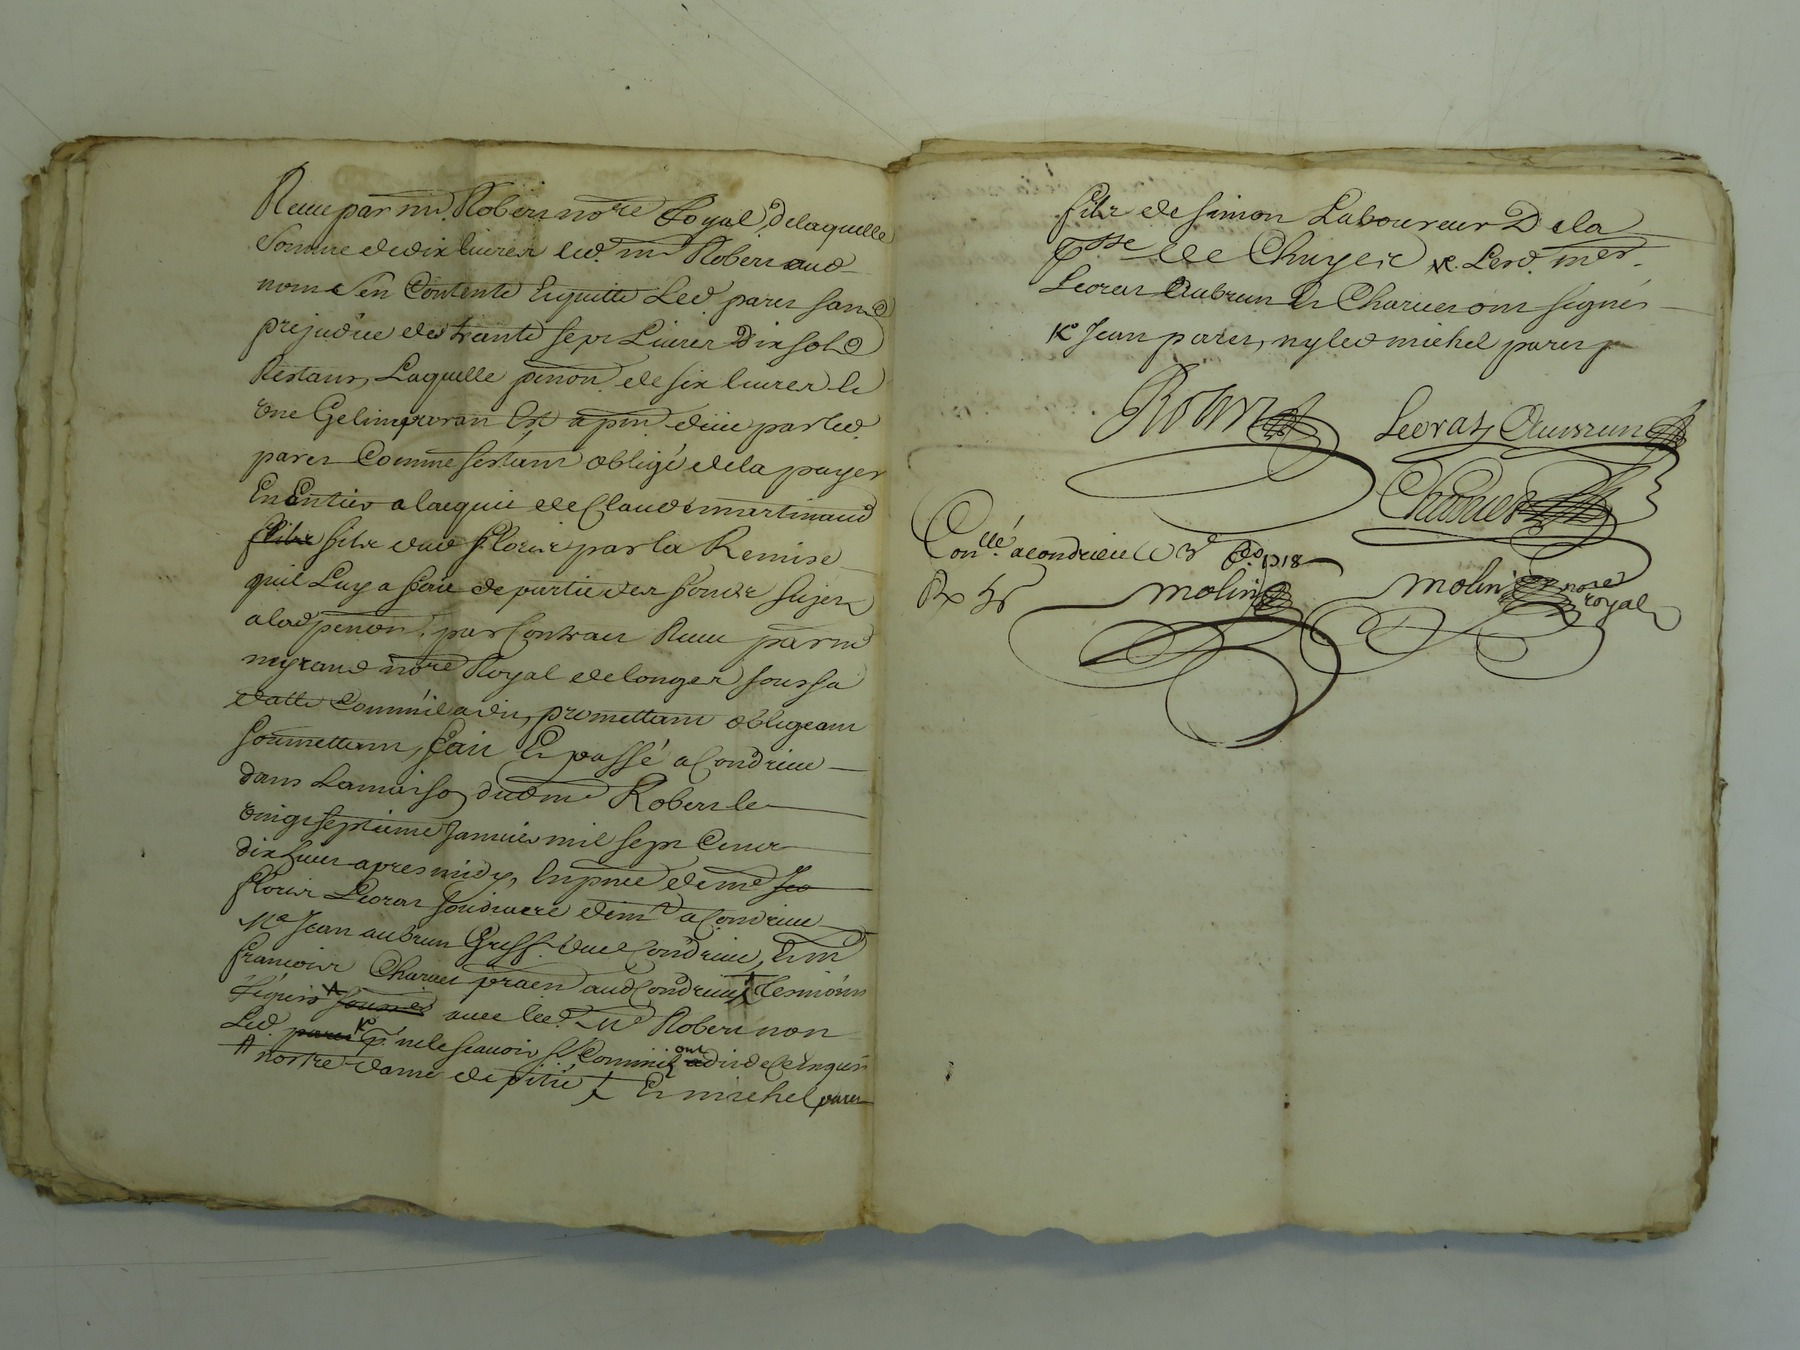 Receu par me. Robert nore Royal, de laquelle
Somme de dix livres led. me Robert aud
nom Sen Contente Enquitte Led paret sans
prejudice des trante sept Livres Dix sols
Restans, Laquelle pention de six livres et
une Geline par an Est a pnt. düe par led.
paret Comme sestant obligé de la payer
En Entier a lacquit de Claude martinaud
fils dud floris par la Remise
quil Luy a faitte de partie des fonds sujets
a lad pention, par Contrat Receu par me
mirand nore Royal de longes sous sa
datte Comme il a dit, promettant obligeant
soumettant, fait Et passé a Condrieu
dans La maison dud me Robert le
vingt septieme Janvier mil sept Cent
dix huit apres midy, En pnce de me
floris Leoras soudiacre demt a Condrieu
Me Jean aubrun Greff. dud Condrieu, Et me
francois Charvet praen aud Condrieu Temoins
Requis avec led. Me Robert non
Led. p. ne le scavoir Comme ils ont dit de Ce Enquis
nostre dame de pitié Et michel paret
fils de simon Laboureur De la
psse de Chuyer Ve. Lesd. mes.
Leoras Aubrun Et Charvet ont signés
Ko Jean paret, ny led michel paret
Robert
Leoras Aubrun
Charvet
Conllé a condrieu le 3e 1718
molin
molin nore
royal